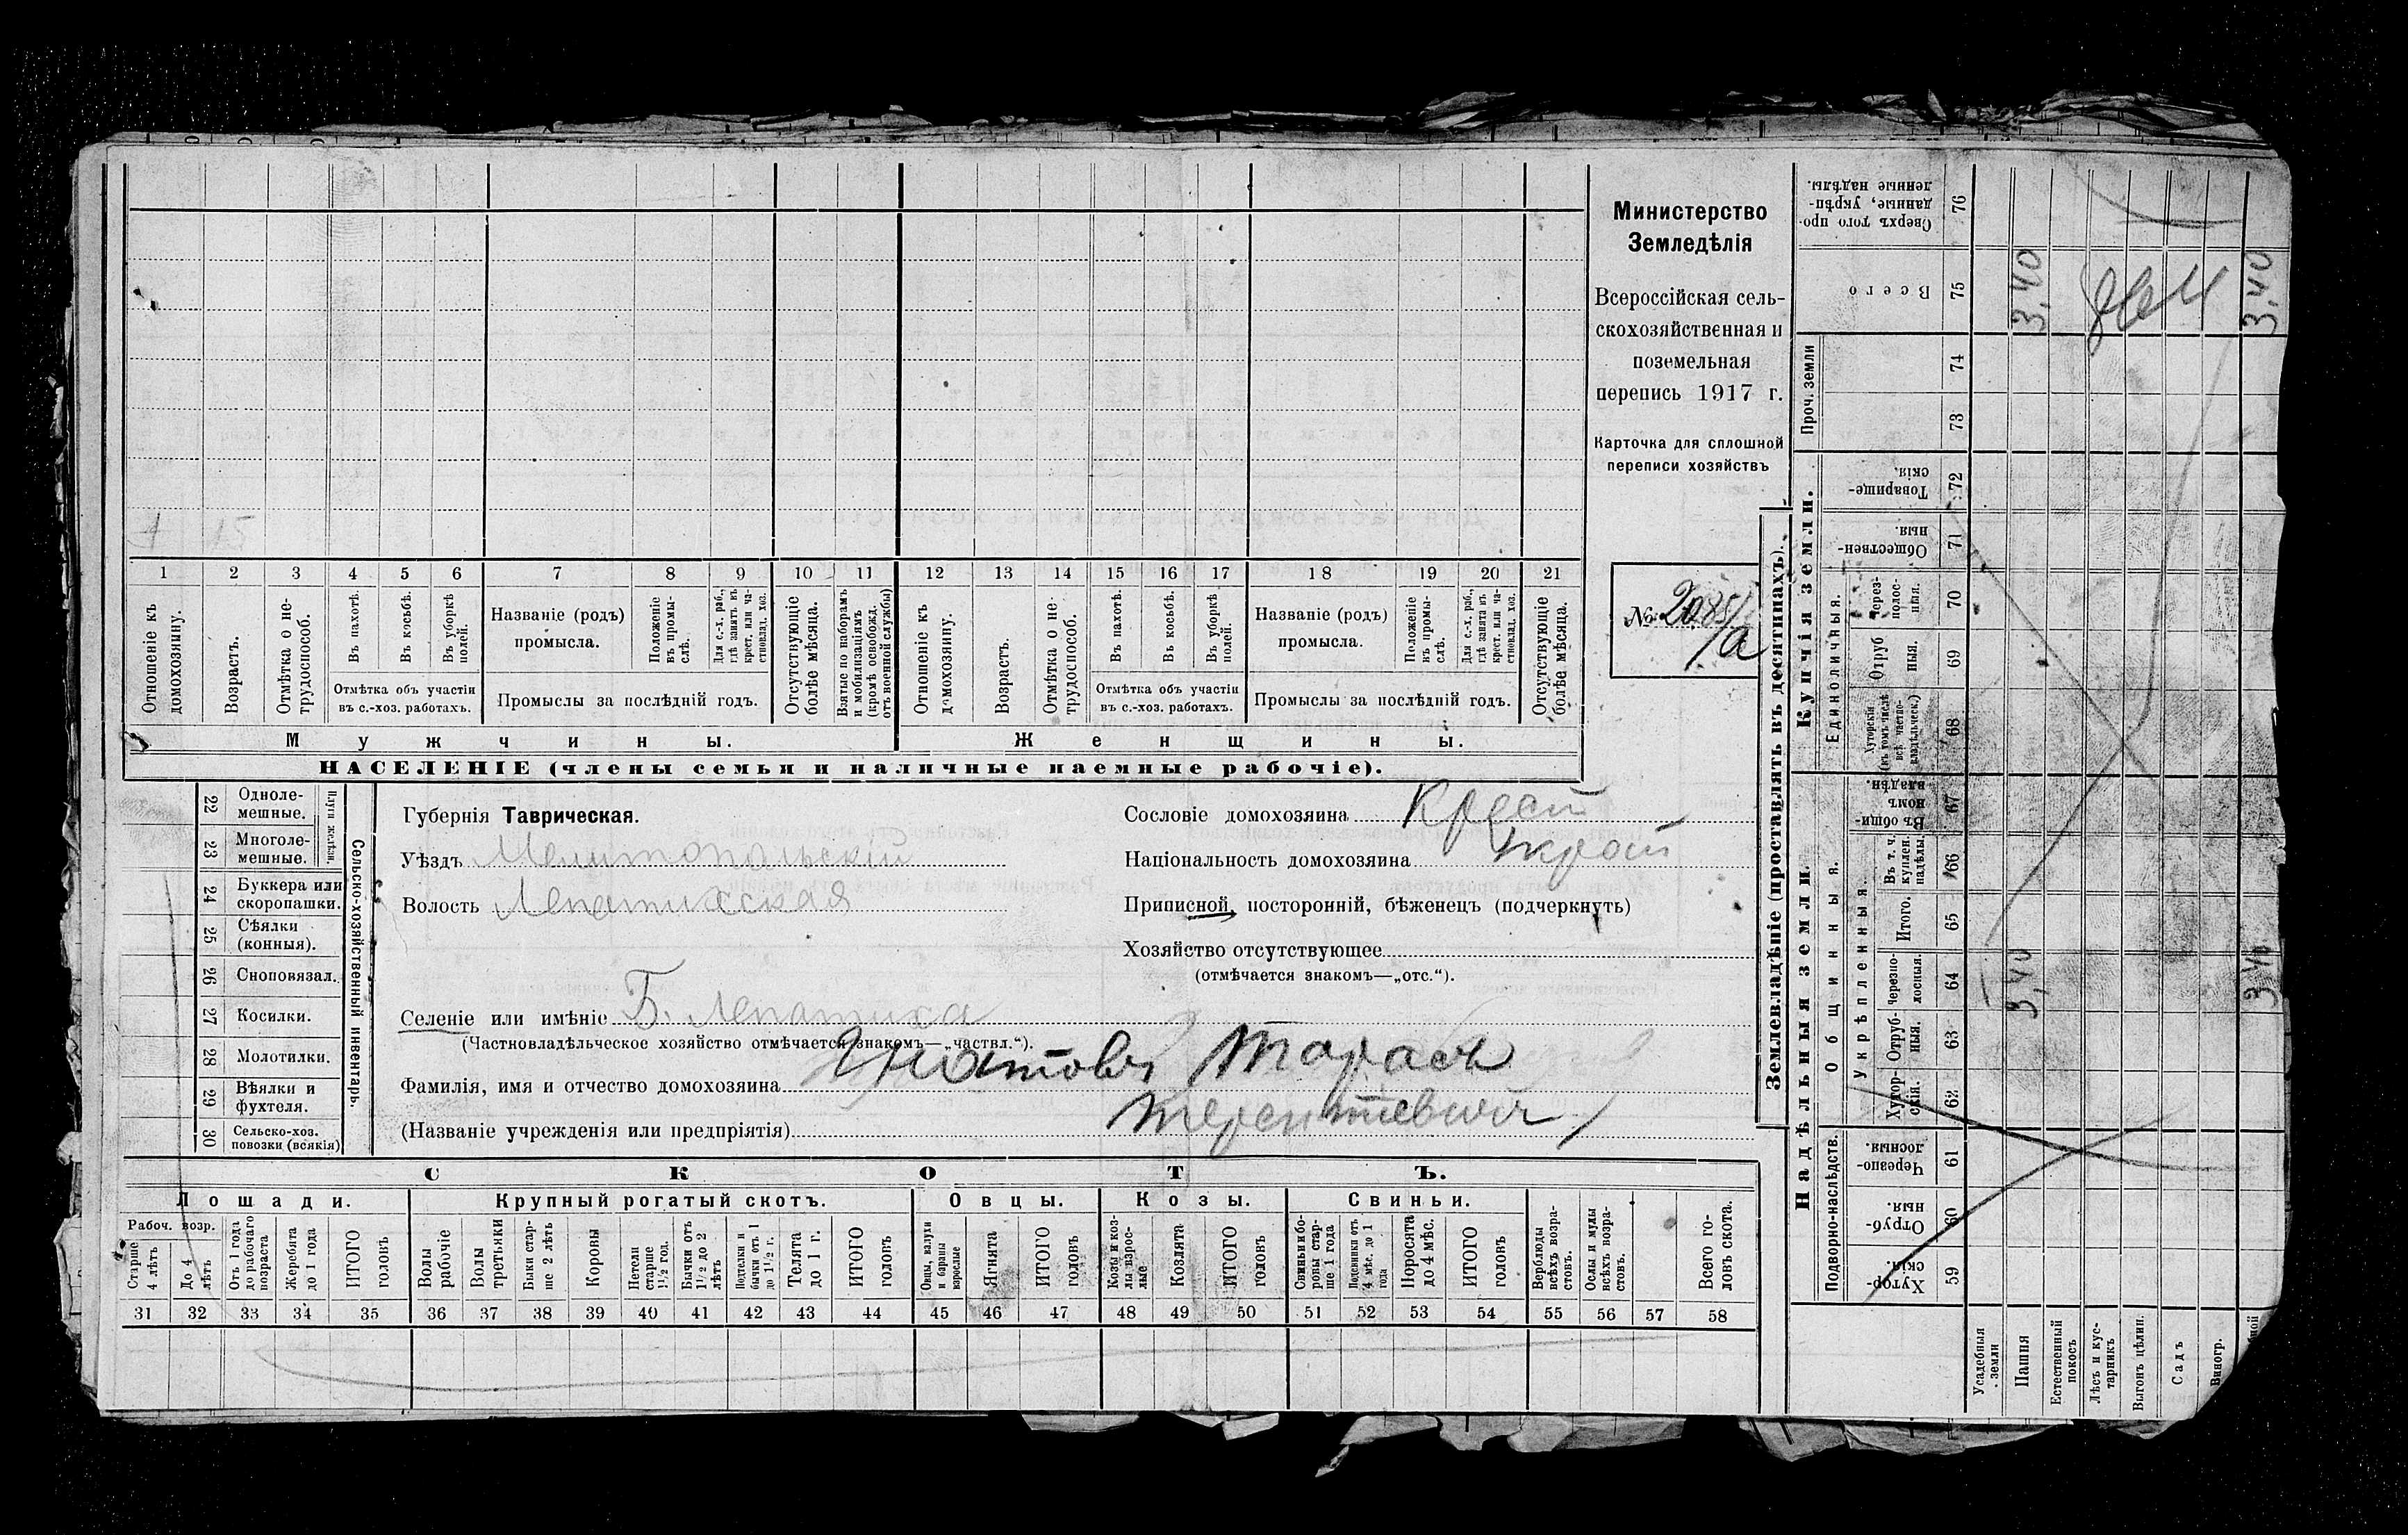 Министерство
Земледѣлія
Всероссійская сель-
скохозяйственная и
поземельная
перепись 1917 г.
Карточка для сплошной
переписи хозяйствъ
№ 2085/
/а
1 15
1 2 3 4 5 6 7 8 9 10 11 12 13 14 15 16 17 18 19 20 21
Отношеніе къ домохозяину.
Возрастъ.
Отмѣтка о не-трудоспособ.
Въ пахотѣ.
Въ косьбѣ.
Въ уборкѣ полей.
Отмѣтка объ участіи
въ с.-хоз. работахъ.
Названіе (родъ)
промысла.
Положеніе въ промы-слѣ.
Для с.-х. раб., гдѣ занятъ въ крест. или ча-стновлад. хоз.
Промыслы за послѣдній годъ.
Отсутствующіе болѣе мѣсяца.
Взятые по наборамъ и мобилизаціямъ (кромѣ освобожд. отъ военной службы)
Отношеніе къ домохозяину.
Возрастъ.
Отмѣтка о не-трудоспособ.
Въ пахотѣ.
Въ косьбѣ.
Въ уборкѣ полей.
Отмѣтка объ участіи
въ с.-хоз. работахъ.
Названіе (родъ)
промысла.
Положеніе въ промы-слѣ.
Для с.-х. раб., гдѣ занятъ въ крест. или ча-стновлад. хоз.
Промыслы за послѣдній годъ.
Отсутствующіе болѣе мѣсяца.
Мужчины. Женщины.
НАСЕЛЕНІЕ (члены семьи и наличные наемные рабочіе).
Сельско-хозяйственный инвентарь.
Плуги желѣзн.
22 Одноле-мешные.
23 Многоле-мешные.
24 Буккера или скоропашки.
25 Сѣялки (конныя).
26 Сноповязал.
27 Косилки.
28 Молотилки.
29 Вѣялки и фухтеля.
30 Сельско-хоз. повозки (всякія)
Губернія Таврическая.
Уѣздъ Мелитопольскій
Волость Лепатихская
Селеніе или имѣніе Б. Лепатиха
(Частновладѣльческое хозяйство отмѣчается знакомъ—„частвл.“).
Фамилія, имя и отчество домохозяина Игнатовъ Тарасъ
(Названіе учрежденія или предпріятія) Терентіевичъ
Сословіе домохозяина Крест
Національность домохозяина
Приписной, посторонній, бѣженецъ (подчеркнуть)
Хозяйство отсутствующее
(отмѣчается знакомъ—„отс.“).
СКОТЪ.
Лошади. Крупный рогатый скотъ. Овцы. Козы. Свиньи.
Рабоч. возр.
Старше 4 лѣтъ
До 4 лѣтъ
Отъ 1 года до рабочаго возраста
Жеребята до 1 года
ИТОГО головъ
Волы рабочіе
Волы третьяки
Быки стар-ше 2 лѣтъ
Коровы
Нетели старше 1½ год.
Бычки отъ 1½ до 2 лѣтъ
Подтелки и бычки отъ 1 до 1½ г.
Телята до 1 г.
ИТОГО головъ
Овцы, валухи и бараны взрослые
Ягнята
ИТОГО головъ
Козы и коз-лы взрос-лые
Козлята
ИТОГО головъ
Свиньи и бо-ровы стар-ше 1 года
Подсвинки отъ 4 мѣс. до 1 года
Поросята до 4 мѣс.
ИТОГО головъ
Верблюды всѣхъ возра-стовъ.
Ослы и мулы всѣхъ возра-стовъ.
Всего го-ловъ скота.
31 32 33 34 35 36 37 38 39 40 41 42 43 44 45 46 47 48 49 50 51 52 53 54 55 56 57 58
Землевладѣніе (проставлять въ десятинахъ).
Надѣльныя земли.
Купчія земли.
Проч. земли
Подворно-наслѣдств.
Общинныя.
Укрѣпленныя.
Единоличныя.
Хутор-скія. 59
Отруб-ныя. 60
Черезпо-лосныя. 61
Хутор-скія. 62
Отруб-ныя. 63
Черезпо-лосныя. 64
Итого. 65
Въ т. ч. куплен. надѣлы 66
Въ общи-номъ владѣн. 67
Хуторскія (въ томъ числѣ всѣ частно-владѣльческ.) 68
Отруб ныя. 69
Через-полос-ныя. 70
Обществен-ныя. 71
Товарище-скія. 72
73
74
Всего 75
Сверхъ того про-данные, укрѣп-ленные надѣлы. 76
Усадебныя земли
Пашня 3,40 3,40
Естественный покосъ
Лѣсъ и кус-тарникъ
Выгонъ цѣлин.
Садъ
Виногр.
3,40 3,40